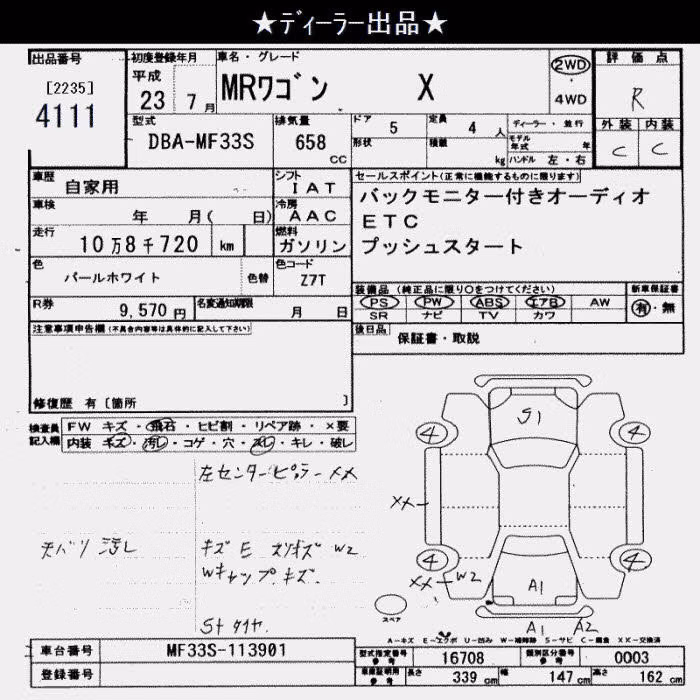 ★ディーラー出品★
出品番号
[2235]
4111
初度登録年月
平成
23 7 月
車名・グレード
MRワゴン X
2WD
4WD
評価点
R
外装 内装
C C
型式
DBA-MF33S
排気量
658
CC
ドア
5
定員
4 人
形状
積載
kg
ディーラー・並行
モデル年式 年
ハンドル 左・右
車歴
自家用
シフト
IAT
車検
年 月( 日)
冷房
AAC
走行
10万8千720 km
燃料
ガソリン
色
パールホワイト
色替
色コード
Z7T
セールスポイント(正常に機能するものに限ります)
バックモニター付きオーディオ
ETC
プッシュスタート
R券
9,570 円
名変通知期限
月 日
装備品 (純正品に限り○をつけてください)
PS PW ABS エアB AW
SR ナビ TV カワ
新車保証書
有・無
後日品
保証書・取説
注意事項申告欄(不具合内容等は具体的に記入して下さい)
修復歴 有 [箇所 ]
検査員記入欄
FW キズ・飛石・ヒビ割・リペア跡・×要
内装 キズ・汚レ・コゲ・穴・スレ・キレ・破レ
左センターピラー XX
天バリ 汚レ
キズ E スリキズ W2
Wキャップキズ
St タイヤ
S1
4 4
XX
4 4
XX W2
A1
A1 A2
スペア
A-キズ E-エクボ U-凹み W-補修跡 S-サビ C-腐食 XX-交換済
車台番号
MF33S-113901
登録番号
型式指定番号 参考
16708
類別区分番号 参考
0003
車庫証明用 参考
長さ 339 cm 幅 147 cm 高さ 162 cm